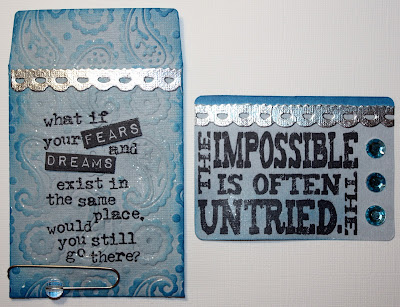 what if
your FEARS
and
DREAMS
exist in
the same
place,
would
you still
go there?
THE IMPOSSIBLE
IS OFTEN
THE UNTRIED.